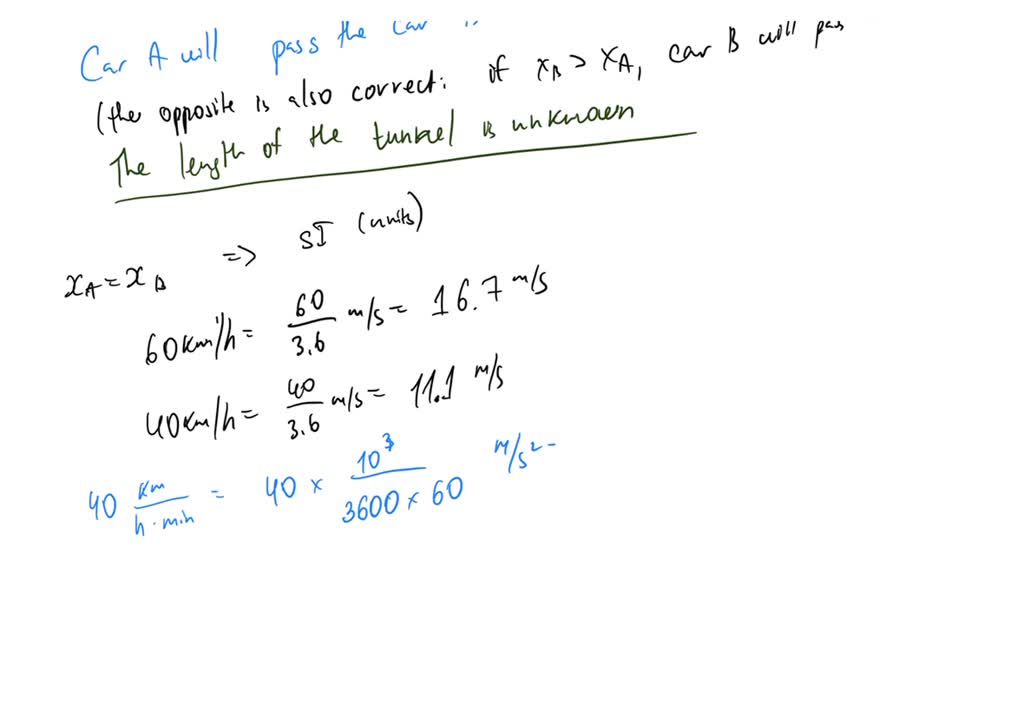 Car A will pass the car
(the opposite is also correct: if x_B > x_A, car B will pass
The length of the tunnel is unknown
x_A = x_B => SI (units)
60 km/h = 60/3.6 m/s = 16.7 m/s
40 km/h = 40/3.6 m/s = 11.1 m/s
40 km/h·min = 40 × 10³/3600 × 60 m/s² -